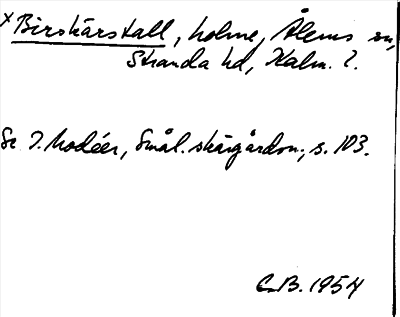 x Birskärstall, holme, Ålems sn,
Stranda hd, Kalm. l.
Se I. Modéer, Smål. skärgårdsn., s. 103.
C.B. 1954